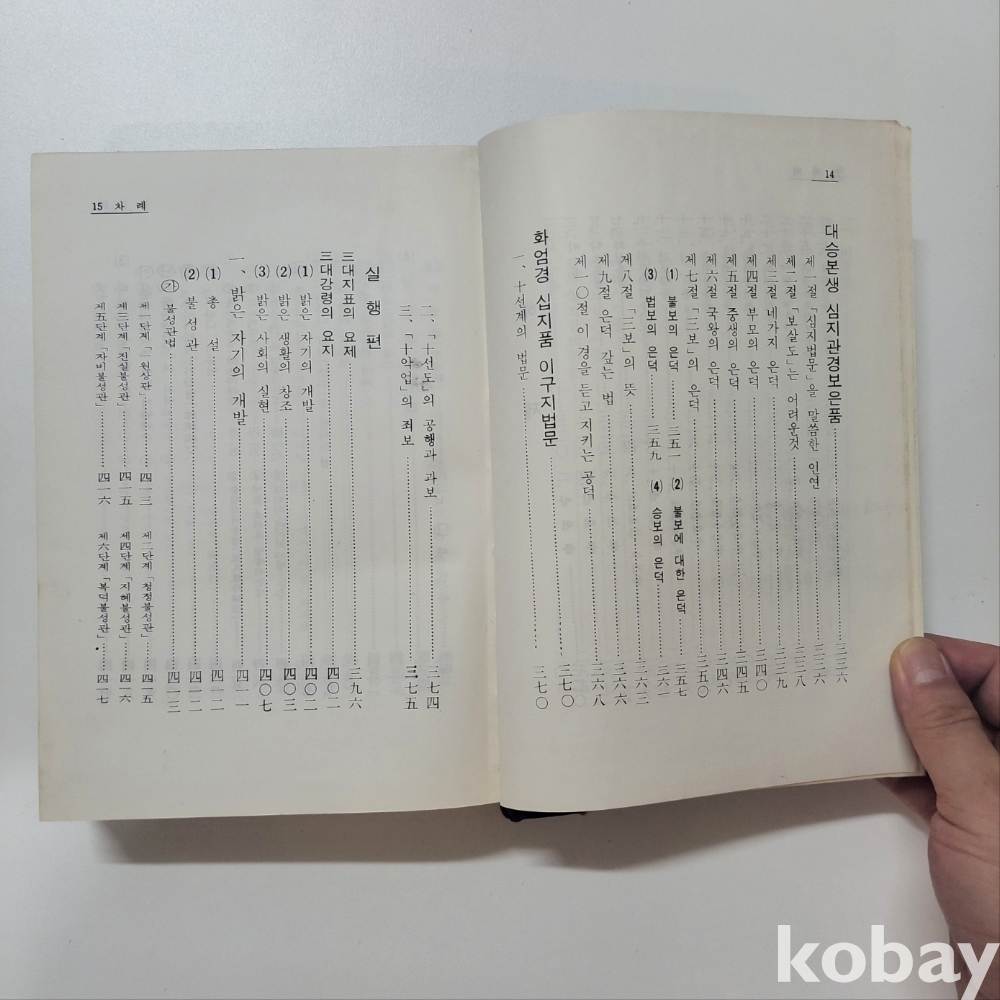 14
대승본생 심지관경보은품 ………… 三三六
제一절 「심지법문」을 말씀한 인연 ………… 三三六
제二절 「보살도」는 어려운것 ………… 三三八
제三절 네가지 은덕 ………… 三三九
제四절 부모의 은덕 ………… 三四〇
제五절 중생의 은덕 ………… 三四五
제六절 국왕의 은덕 ………… 三四五
제七절 「三보」의 은덕 ………… 三五〇
(1) 불보의 은덕 ………… 三五一 (2) 불보에 대한 은덕 ………… 三五七
(3) 법보의 은덕 ………… 三五九 (4) 승보의 은덕 ………… 三六一
제八절 「三보」의 뜻 ………… 三六三
제九절 은덕 갚는 법 ………… 三六六
제一〇절 이 경을 듣고 지키는 공덕 ………… 三六八
화엄경 십지품 이구지법문 ………… 三七〇
一、十선계의 법문 ………… 三七〇
15 차 례
二、「十선도」의 공행과 과보 ………… 三七四
三、「十악업」의 죄보 ………… 三七五
실 행 편
三대지표의 요제 ………… 三九六
三대강령의 요지 ………… 四〇二
(1) 밝은 자기의 개발 ………… 四〇二
(2) 밝은 생활의 창조 ………… 四〇三
(3) 밝은 사회의 실현 ………… 四〇七
一、밝은 자기의 개발 ………… 四一一
(1) 총 설 ………… 四一二
(2) 불 성 관 ………… 四一二
㉮ 불성관법 ………… 四一三
제一단계 「一원상관」 ………… 四一三 제二단계 「청정불성관」 ………… 四一五
제三단계 「진실불성관」 ………… 四一五 제四단계 「지혜불성관」 ………… 四一六
제五단계 「자비불성관」 ………… 四一六 제六단계 「복덕불성관」 ………… 四一七
kobay